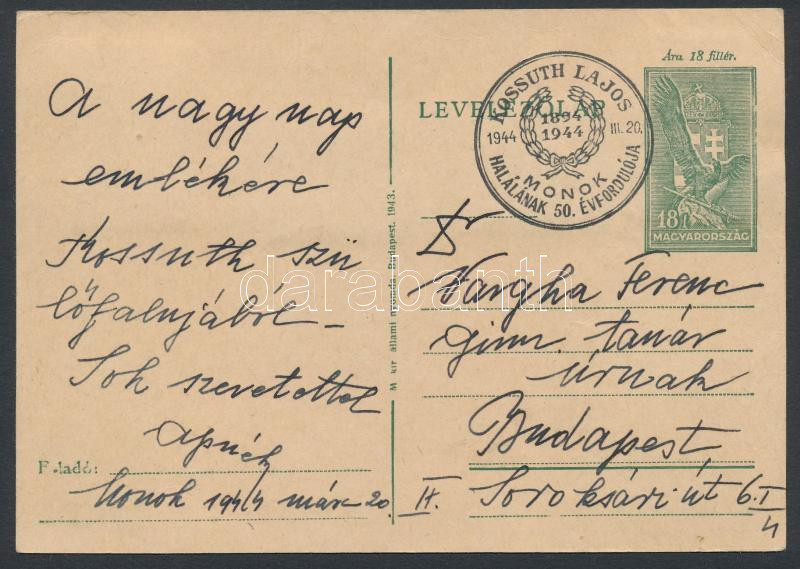 A nagy nap
emlékére
Kossuth szü
lőfalujából –
Sok szeretettel
Feladó:
Monok 1944 márc 20.
M. kir. állami nyomda, Budapest. 1943.
Ára 18 fillér.
LEVELEZŐLAP
KOSSUTH LAJOS
1894
1944 1944 III. 20.
MONOK
HALÁLÁNAK 50. ÉVFORDULÓJA
18f
MAGYARORSZÁG
Dr
Vargha Ferenc
gimn. tanár
úrnak
Budapest
IX. Soroksári út 6. I
4
darabanth